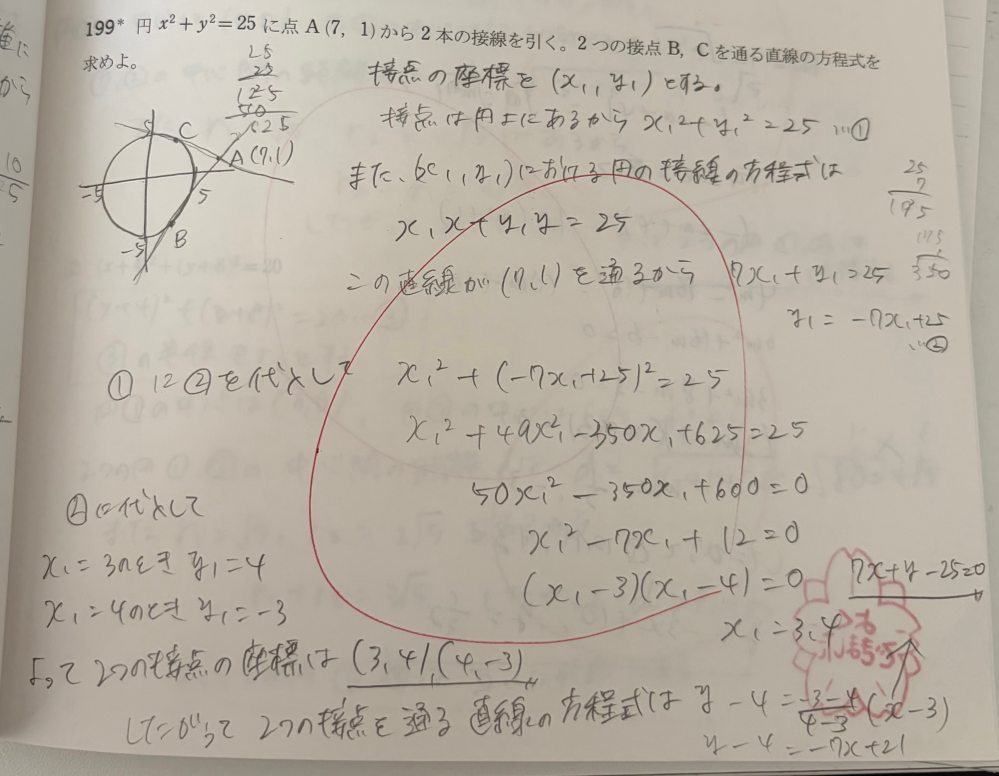 199* 円 x²+y²=25 に点 A(7, 1)から2本の接線を引く。2つの接点 B, C を通る直線の方程式を
求めよ。
25
25
125
50
625
接点の座標を(x₁, y₁)とする。
接点は円上にあるから x₁²+y₁²=25 …①
また、(x₁, y₁)における円の接線の方程式は
x₁x+y₁y=25
この直線が(7,1)を通るから 7x₁+y₁=25
y₁=-7x₁+25
…②
5
C
A(7,1)
-5
5
B
-5
25
7
175
175
2
350
①に②を代入して x₁²+(-7x₁+25)²=25
x₁²+49x₁²-350x₁+625=25
50x₁²-350x₁+600=0
x₁²-7x₁+12=0
(x₁-3)(x₁-4)=0
x₁=3,4
②に代入して
x₁=3のとき y₁=4
x₁=4のとき y₁=-3
よって2つの接点の座標は (3,4),(4,-3)
したがって2つの接点を通る直線の方程式は y-4=\frac{-3-4}{4-3}(x-3)
y-4=-7x+21
7x+y-25=0
10
5
から